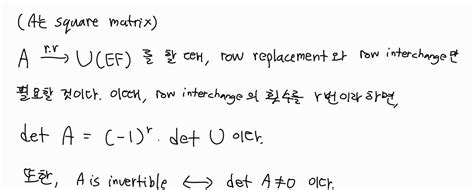 (A는 square matrix)
A r.r→ U(EF) 를 할 때, row replacement 와 row interchange만
필요할 것이다. 이때, row interchange 의 횟수를 r번이라 하면,
det A = (-1)^r · det U 이다.
또한, A is invertible ⟷ det A≠0 이다.